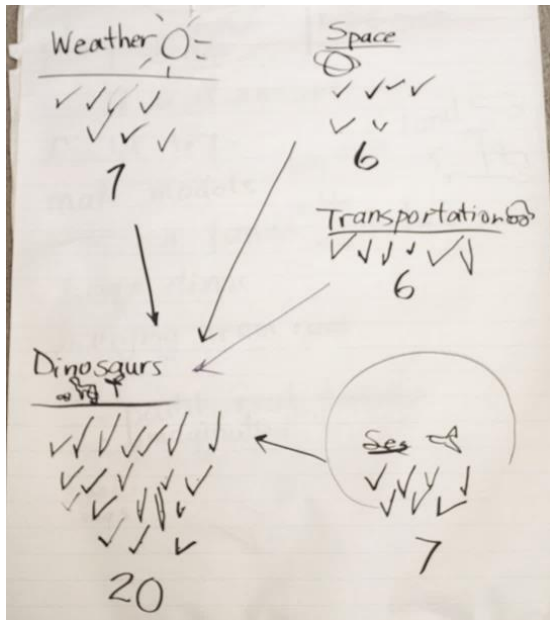 Weather
7
Space
6
Transportation
6
Dinosaurs
20
Sea
7